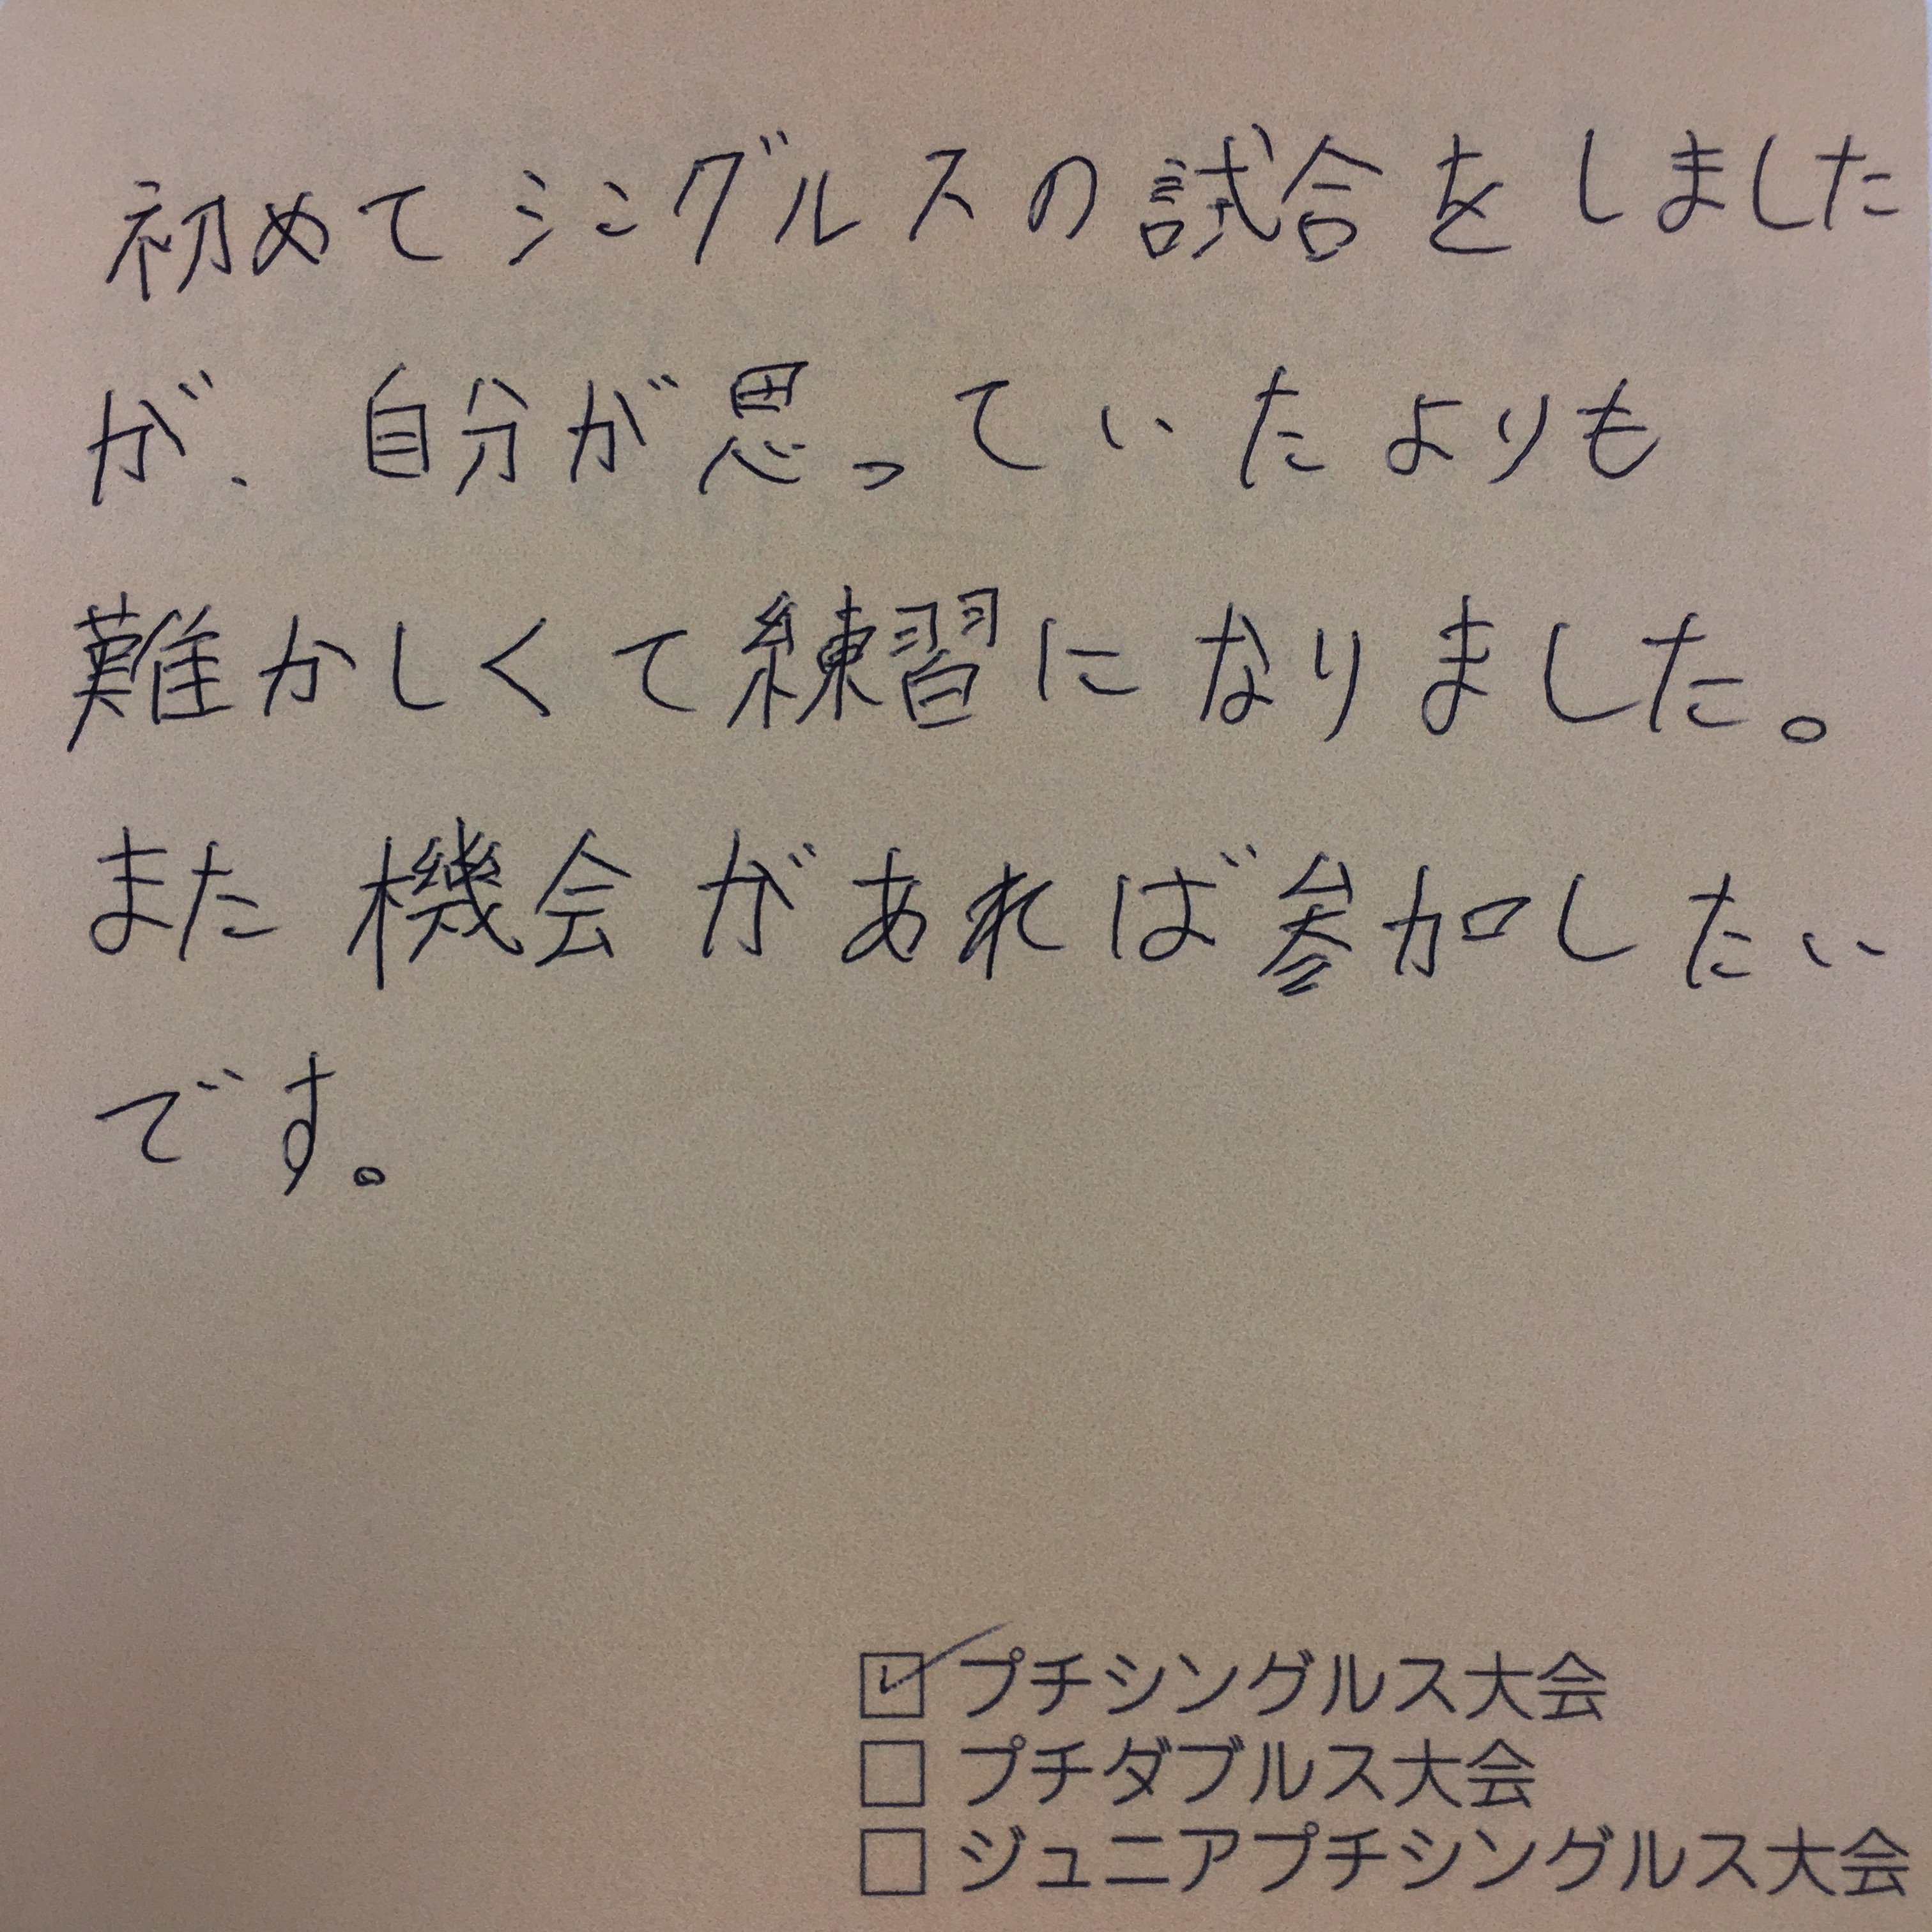 初めてシングルスの試合をしました
が、自分が思っていたよりも
難かしくて練習になりました。
また機会があれば参加したい
です。
☑ プチシングルス大会
☐ プチダブルス大会
☐ ジュニアプチシングルス大会